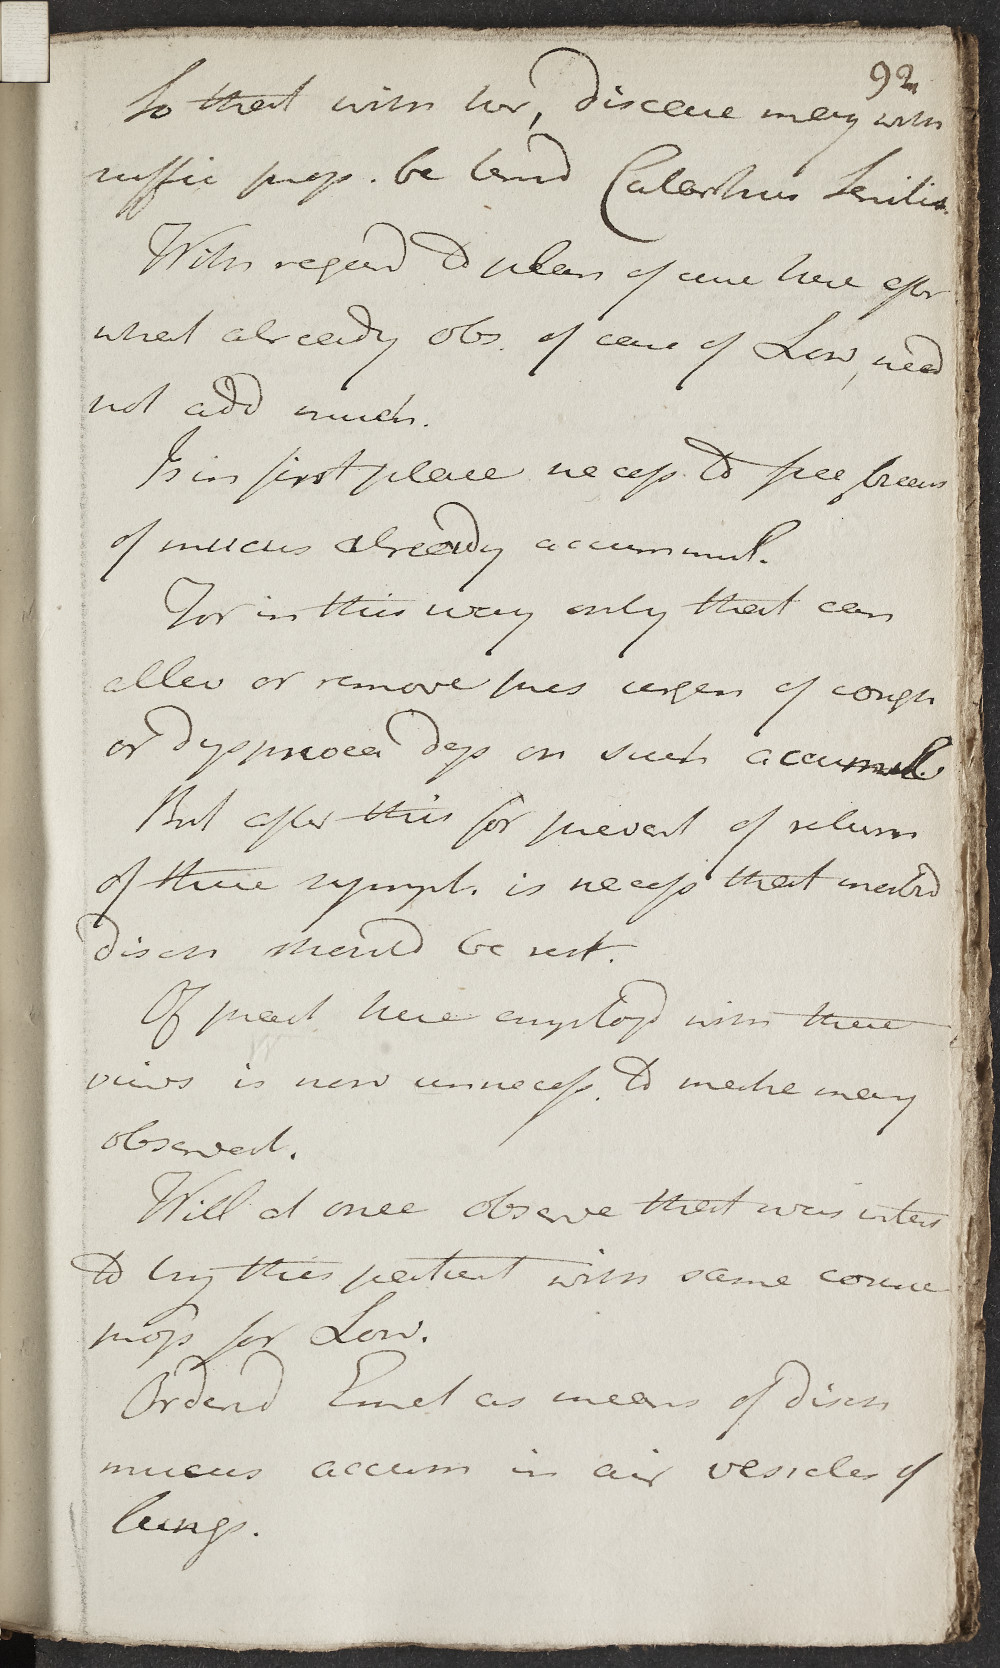 92
So that with her, disease may with
suffic prop. be term'd Catarrhus Senilis.
With regard to plan of cure here after
what already obs. of case of Low, need
not add much.
Is in first place necess. to free breast
of mucus already accummul.
For in this way only that can
allev or remove pres urgen of cough
or dyspnoea dep on such accumul.
But after this for prevent of return
of these sympt. is necess that morbid
disch should be rest.
Of pract here employ'd with these
views is now unnecess. to make many
observat.
Will at once observe that was inten
to try this patient with same course
prop for Low.
Order'd Emet as means of disch
mucus accum in air vesicles of
lungs.